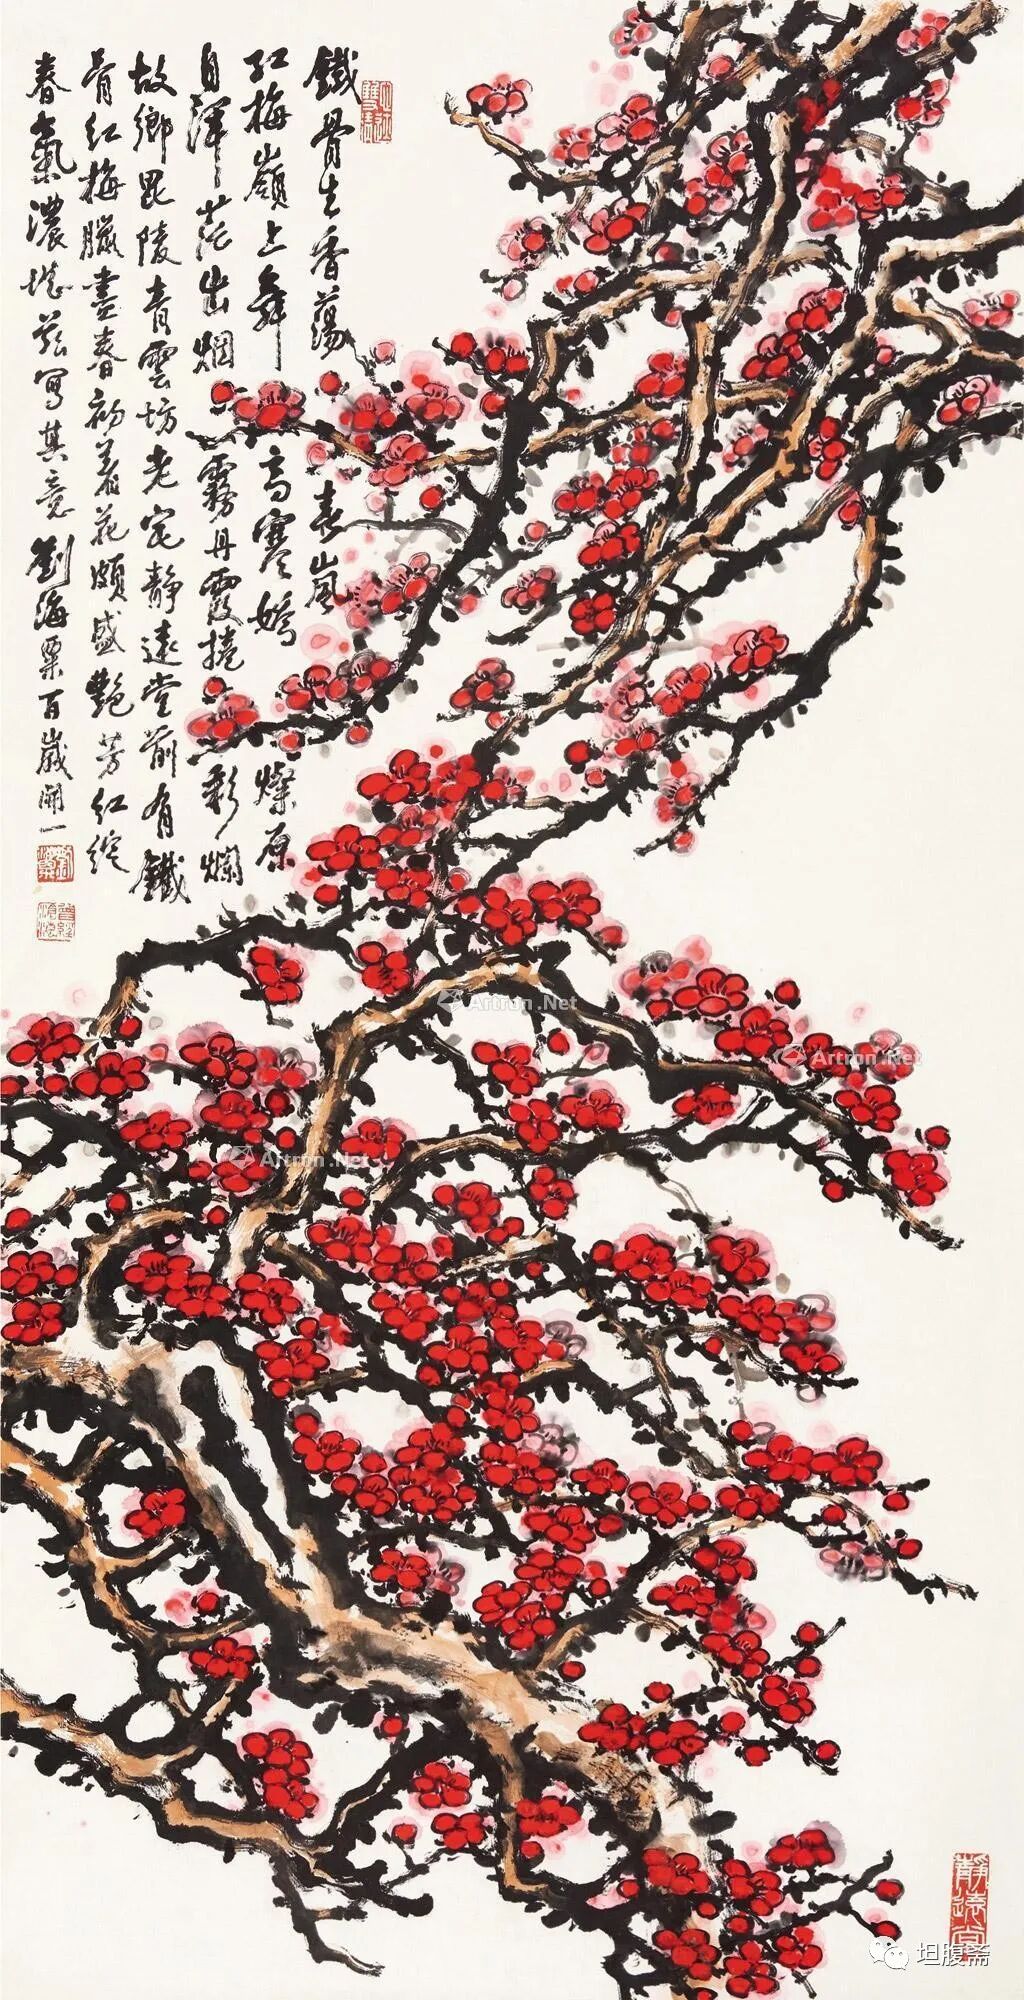 鐵骨生香蕩春嵐
紅梅嶺上舞高寒嬌燦原
自渾茫出烟霧丹霞捲彩爛
故鄉毘陵青雲坊老宅靜遠堂前有鐵
骨紅梅臘盡春初着花頗盛艷芳紅綻
春氣濃挹茲寫其意劉海粟百歲開一
劉海粟
曾經滄海
Artron.Net
Artron.Net
Artron.Net
靜遠堂
坦腹斋